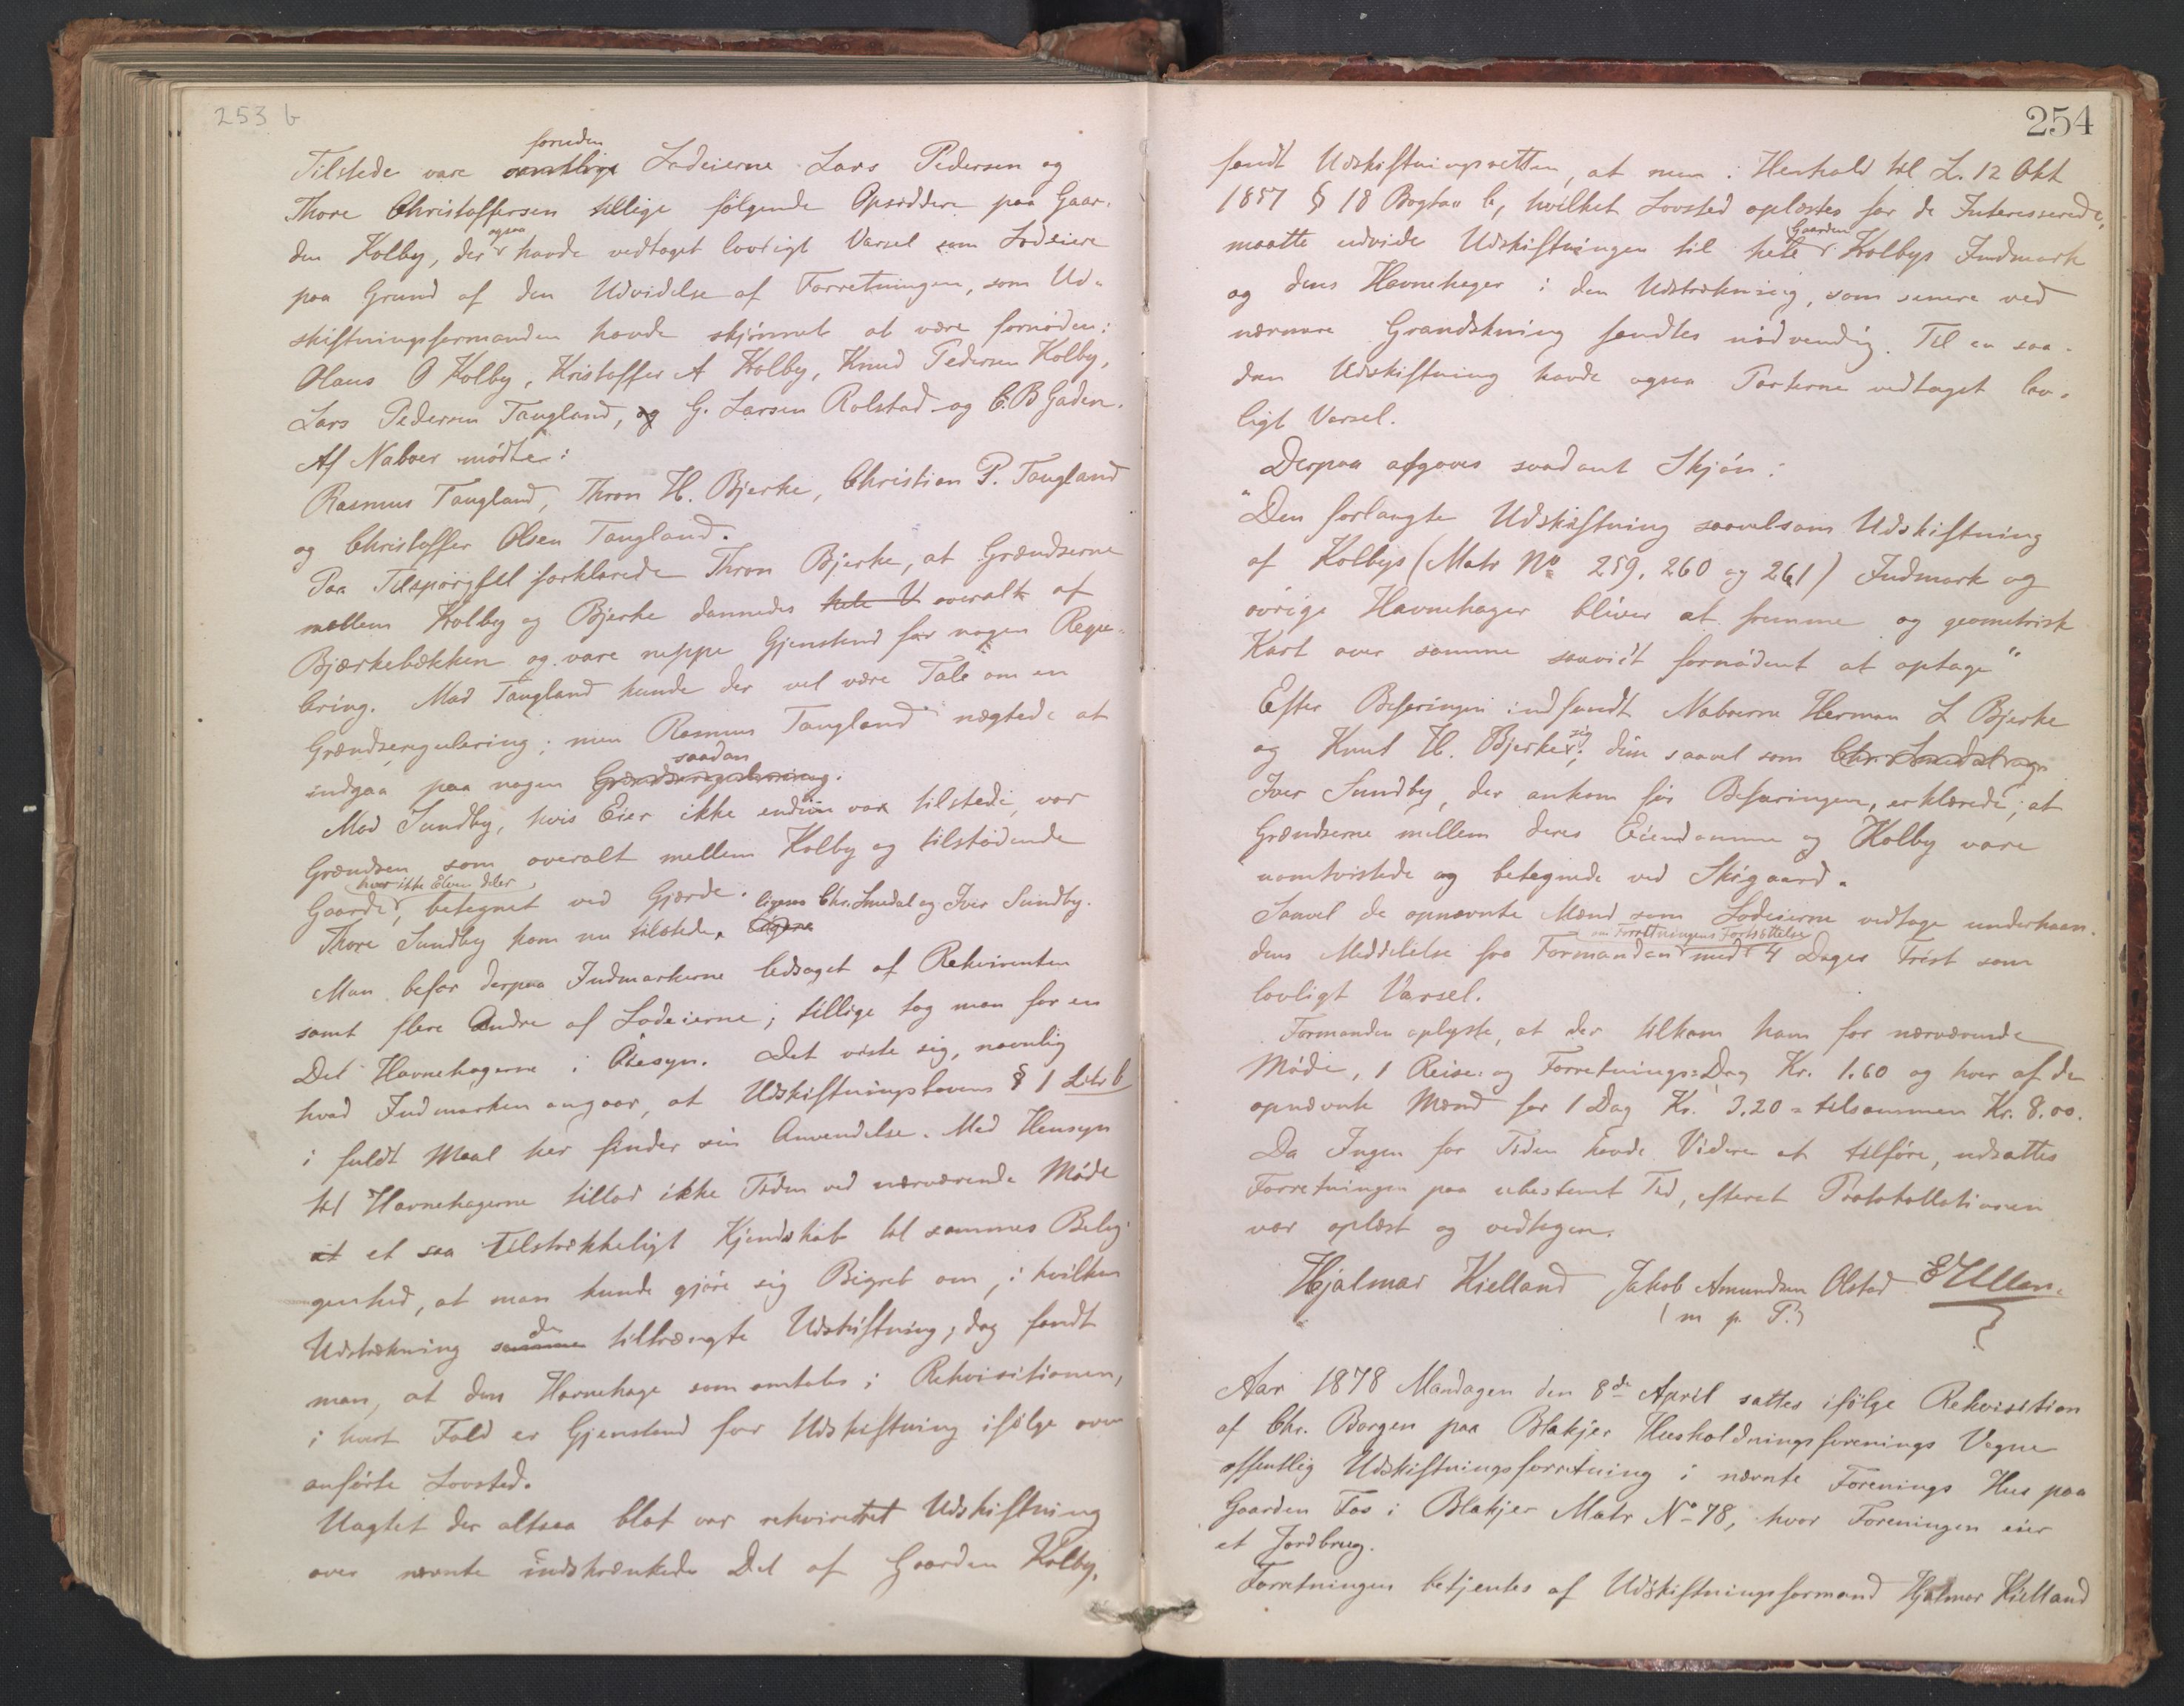 253 b
foruden
Tilstede vare samtlige Lodeierne Lars Pedersen og
Thore Christoffersen tillige følgende Opsiddere paa Gaar-
den Kolby, der ogsaa havde vedtaget lovligt Varsel som Lodeiere
paa Grund af den Udvidelse af Forretningen, som Ud-
skiftningsformanden havde skjønnet at være fornøden:
Olaus O Kolby, Kristoffer A Kolby, Knud Pedersen Kolby,
Lars Pedersen Taugland, og G. Larsen Rolstad og C. B Gaden.
Af Naboer mødte:
Rasmus Taugland, Thron H. Bjerke, Christian P. Taugland
og Christoffer Olsen Taugland.
Paa Tilspørgsel forklarede Thron Bjerke, at Grændserne
mellem Kolby og Bjerke dannedes hele V overalt af
Bjærkebækken og vare neppe Gjenstand for nogen Regu-
lering. Mod Taugland kunde der vel være Tale om en
Grændseregulering; men Rasmus Taugland nægtede at
indgaa paa nogen Grændseregulering. saadan
Mod Sundby, hvis Eier ikke endnu var tilstede, var
Grændsen som overalt mellem Kolby og tilstødende
Gaarde, hvor ikke Elven deler, betegnet ved Gjærde. ligesaa Chr. Smedal og Iver Sundby.
Thore Sundby kom nu tilstede.
Man befor derpaa Indmarkerne ledsaget af Rekvirenten
samt flere Andre af Lodeierne; tillige tog man for en
Del Havnehagerne i Øiesyn. Det viste sig, navnlig
hvad Indmarken angaar, at Udskiftningslovens § 1 Litr b
i fuldt Maal her finder sin Anvendelse. Med Hensyn
til Havnehagerne tillod ikke Tiden ved nærværende Møde
at et saa tilstrækkeligt Kjendskab til sammes Belig-
genhed, at man kunde gjøre sig Begreb om, i hvilken
Udstrækning samme de tiltrængte Udskiftning; dog fandt
man, at den Havnehage som omtales i Rekvisitionen,
i hvert Fald er Gjenstand for Udskiftning ifølge oven
anførte Lovsted.
Uagtet der altsaa blot var rekvireret Udskiftning
over nævnte indskrænkede Del af Gaarden Kolby,
254
fandt Udskiftningsretten, at man i Henhold til L. 12 Okt
1857 § 18 Bogstav b, hvilket Lovsted oplæstes for de Interesserede,
maatte udvide Udskiftningen til hele Gaarden Kolbys Indmark
og dens Havnehager i den Udstrækning, som senere ved
nærmere Grandskning fandtes nødvendig. Til en saa-
dan Udskiftning havde ogsaa Parterne vedtaget lov-
ligt Varsel.
Derpaa afgaves saadant Skjøn:
"Den forlangte Udskiftning saavelsom Udskiftning
af Kolbys (Matr No 259, 260 og 261) Indmark og
øvrige Havnehager bliver at fremme og geometrisk
Kart over samme saavidt fornødent at optage"
Efter Befaringen indfandt Naboerne Herman L Bjerke
og Knut H. Bjerke sig; disse saavel som Chr. Smedal og
Iver Sundby, der ankom før Befaringen, erklærede, at
Grændserne mellem deres Eiendomme og Kolby vare
uomtvistede og betegnede ved Skigaard.
Saavel de opnævnte Mænd som Lodeierne vedtage underhaan-
dens Meddelelse fra Formanden om Forretningens Fortsættelse med 4 Dages Frist som
lovligt Varsel.
Formanden oplyste, at der tilkom ham for nærværende
Møde, 1 Reise- og Forretnings-Dag Kr. 1.60 og hver af de
opnævnte Mænd for 1 Dag Kr. 3.20 = tilsammen Kr. 8.00.
Da Ingen for Tiden havde Videre at tilføre, udsattes
Forretningen paa ubestemt Tid, efterat Protokollationen
var oplæst og vedtagen.
Hjalmar Kielland Jakob Amundsen Olstad E Ullen.
(m. p. P.)
Aar 1878 Mandagen den 8de April sattes ifølge Rekvisition
af Chr. Borgen paa Blakjer Husholdningsforenings Vegne
offentlig Udskiftningsforretning i nævnte Forenings Hus paa
Gaarden Fos i Blakjer Matr No 78, hvor Foreningen eier
et Jordbrug.
Forretningen betjentes af Udskiftningsformand Hjalmar Kielland